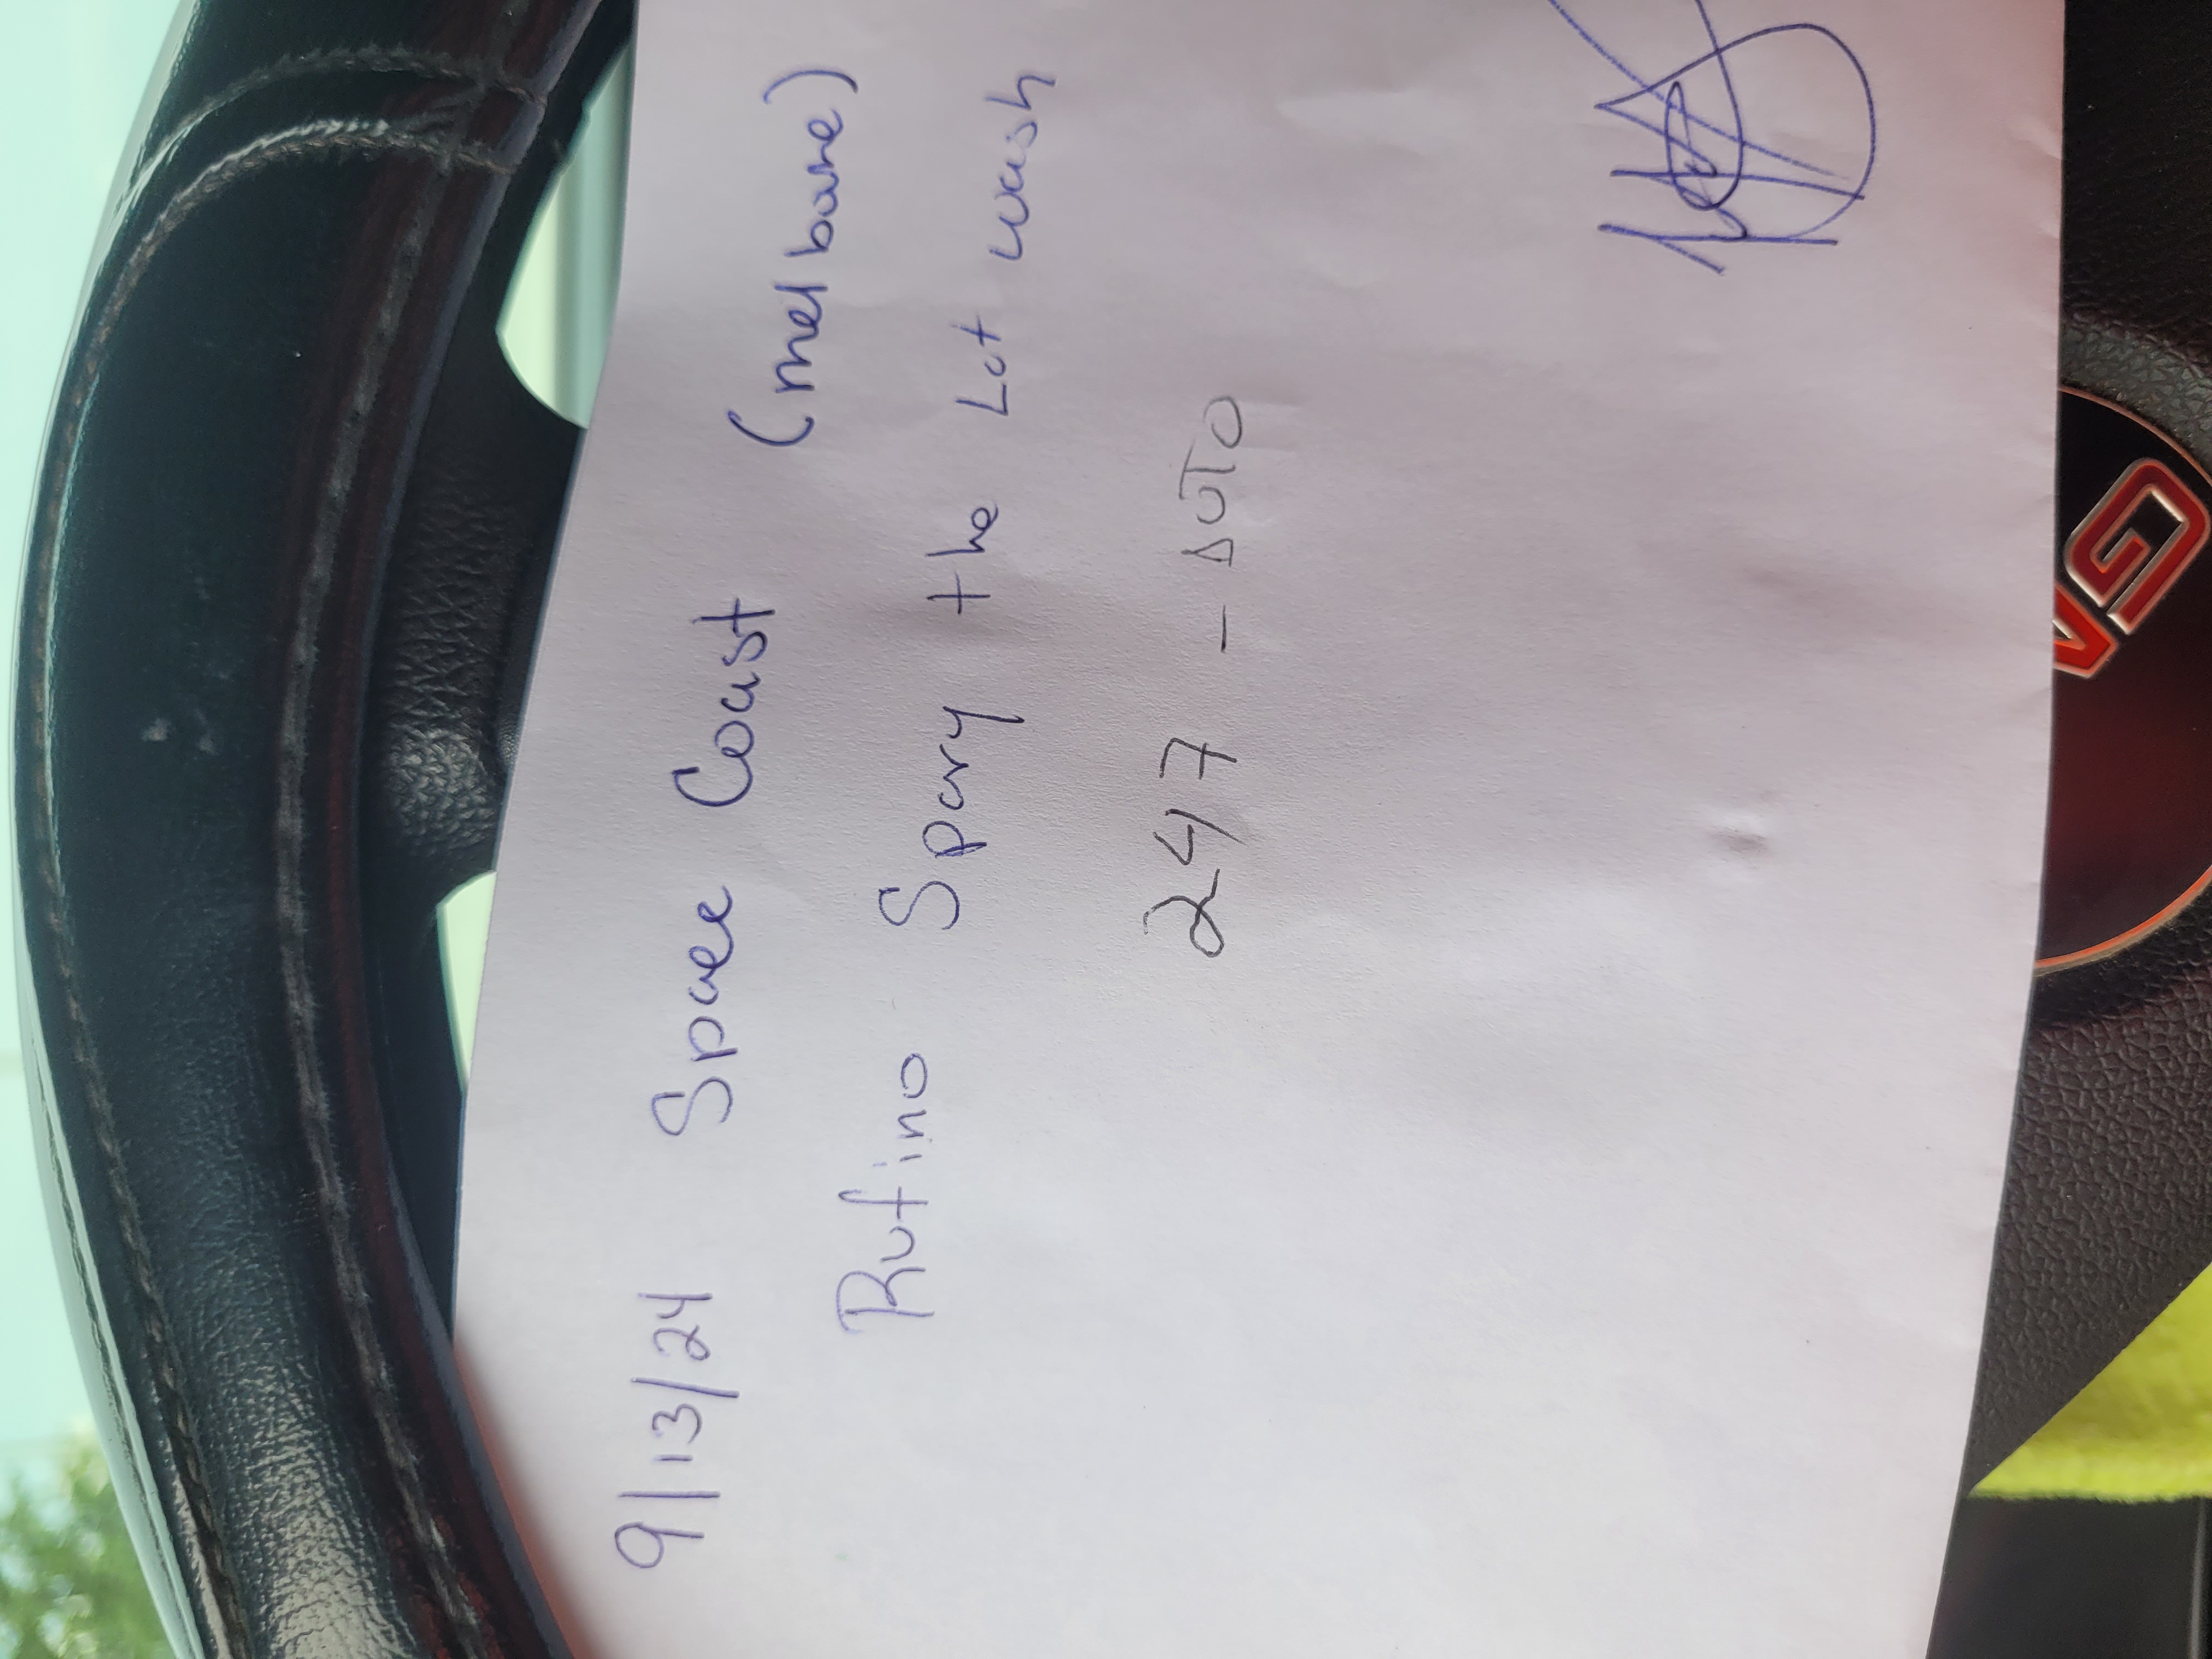 9/13/24 Space Coast (melbarne)
Rufino Spary the Lot wash
247 - AUTO